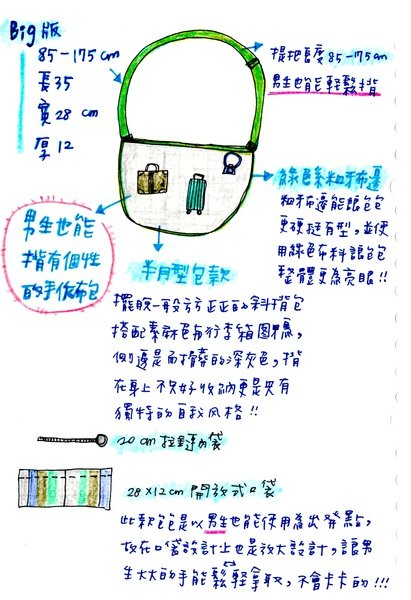 Big版
85-175cm
長35
寬28 cm
厚12
提把長度85-175cm
男生也能輕鬆揹
綠色系粗牙布邊
粗牙布邊能讓包包
更硬挺有型，並使
用綠色布料讓包包
整體更為亮眼!!
男生也能
揹有個性
的手作布包
半月型包款
擺脫一般方方正正的斜揹包
搭配素麻色布行李箱圖騰，
側邊是耐髒的深灰色，揹
在身上不只好收納更是具有
獨特的自我風格!!
20cm拉鏈內袋
28×12cm 開放式口袋
此款包包是以男生也能使用為出發點，
故在口袋設計上也是放大設計，讓男
生大大的手能鬆輕拿取，不會卡卡的!!!